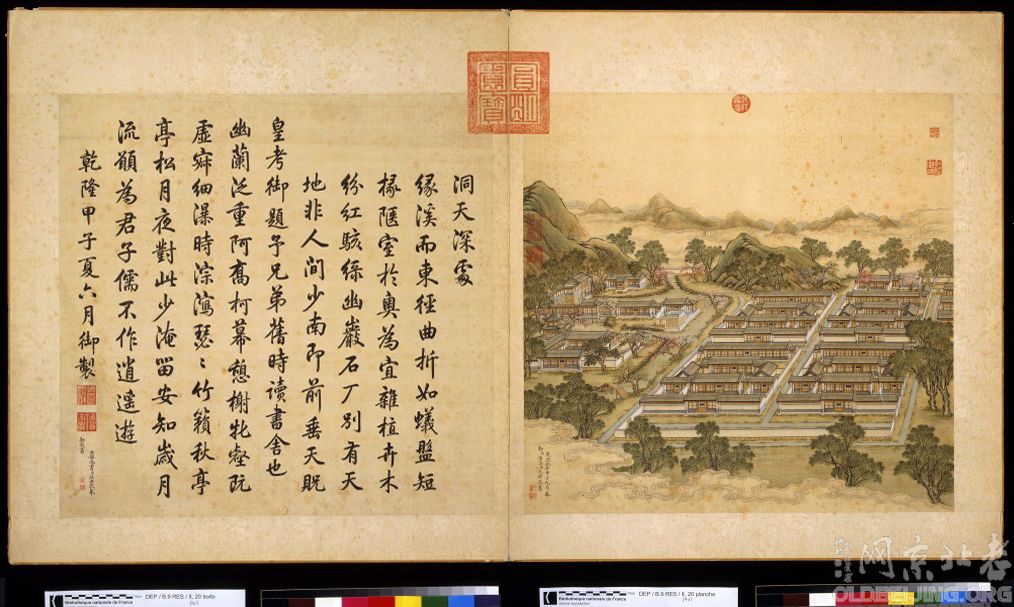 洞天深處
緣溪而東徑曲折如蟻盤短
椽陋室於奧為宜雜植卉木
紛紅駭綠幽巖石厂別有天
地非人間少南即前垂天貺
皇考御題予兄弟舊時讀書舍也
幽蘭泛重阿喬柯幕憩榭牝壑既
虛寂細瀑時淙瀉瑟〻竹籟秋亭
亭松月夜對此少淹畱安知歲月
流願為君子儒不作逍遙遊
乾隆甲子夏六月御製
Bibliothèque nationale de France
DEP / B.9 RES / II, 20 texte
Bibliothèque nationale de France
DEP / B.9 RES / II, 20 planche
老北京網
OLDBEIJING.ORG